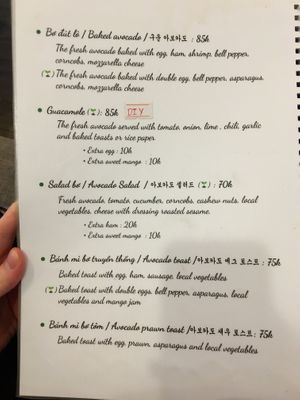 Bơ đút lò / Baked avocado / 구운 아보카도 : 85k
The fresh avocado baked with egg, ham, shrimp, bell pepper,
corncobs, mozzarella cheese
The fresh avocado baked with double egg, bell pepper, asparagus,
corncobs, mozzarella cheese
Guacamole ( ): 85k DIY
The fresh avocado served with tomato, onion, lime , chili, garlic
and baked toasts or rice paper
• Extra egg : 10k
• Extra sweet mango : 10k
Salad bơ / Avocado Salad / 아보카도 샐러드 ( ) : 70k
Fresh avocado, tomato, cucumber, corncobs, cashew nuts, local
vegetables, cheese with dressing roasted sesame.
• Extra ham : 20k
• Extra sweet mango : 10k
Bánh mì bơ truyền thống / Avocado toast / 아보카도 에그 토스트 : 75k
Baked toast with egg, ham, sausage, local vegetables
Baked toast with double eggs, bell pepper, asparagus, local
vegetables and mango jam
Bánh mì bơ tôm / Avocado prawn toast / 아보카도 새우 토스트: 75k
Baked toast with egg, prawn, asparagus and local vegetables